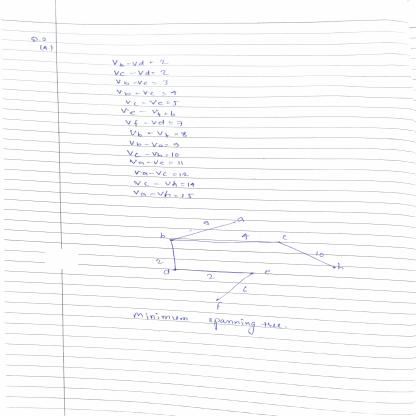 (A)
Vb - Vd = 2
Vc - Vd = 2
Vb - Ve = 3
Vb - Vc = 4
Vc - Ve = 5
Ve - Vf = 6
Vf - Vd = 7
Vb - Vf = 8
Vb - Va = 9
Vc - Vh = 10
Va - Ve = 11
Va - Vc = 12
Vc - Vh = 14
Va - Vh = 15
9 a
b 4 c
2 10
d 2 e h
6
f
minimum spanning tree.